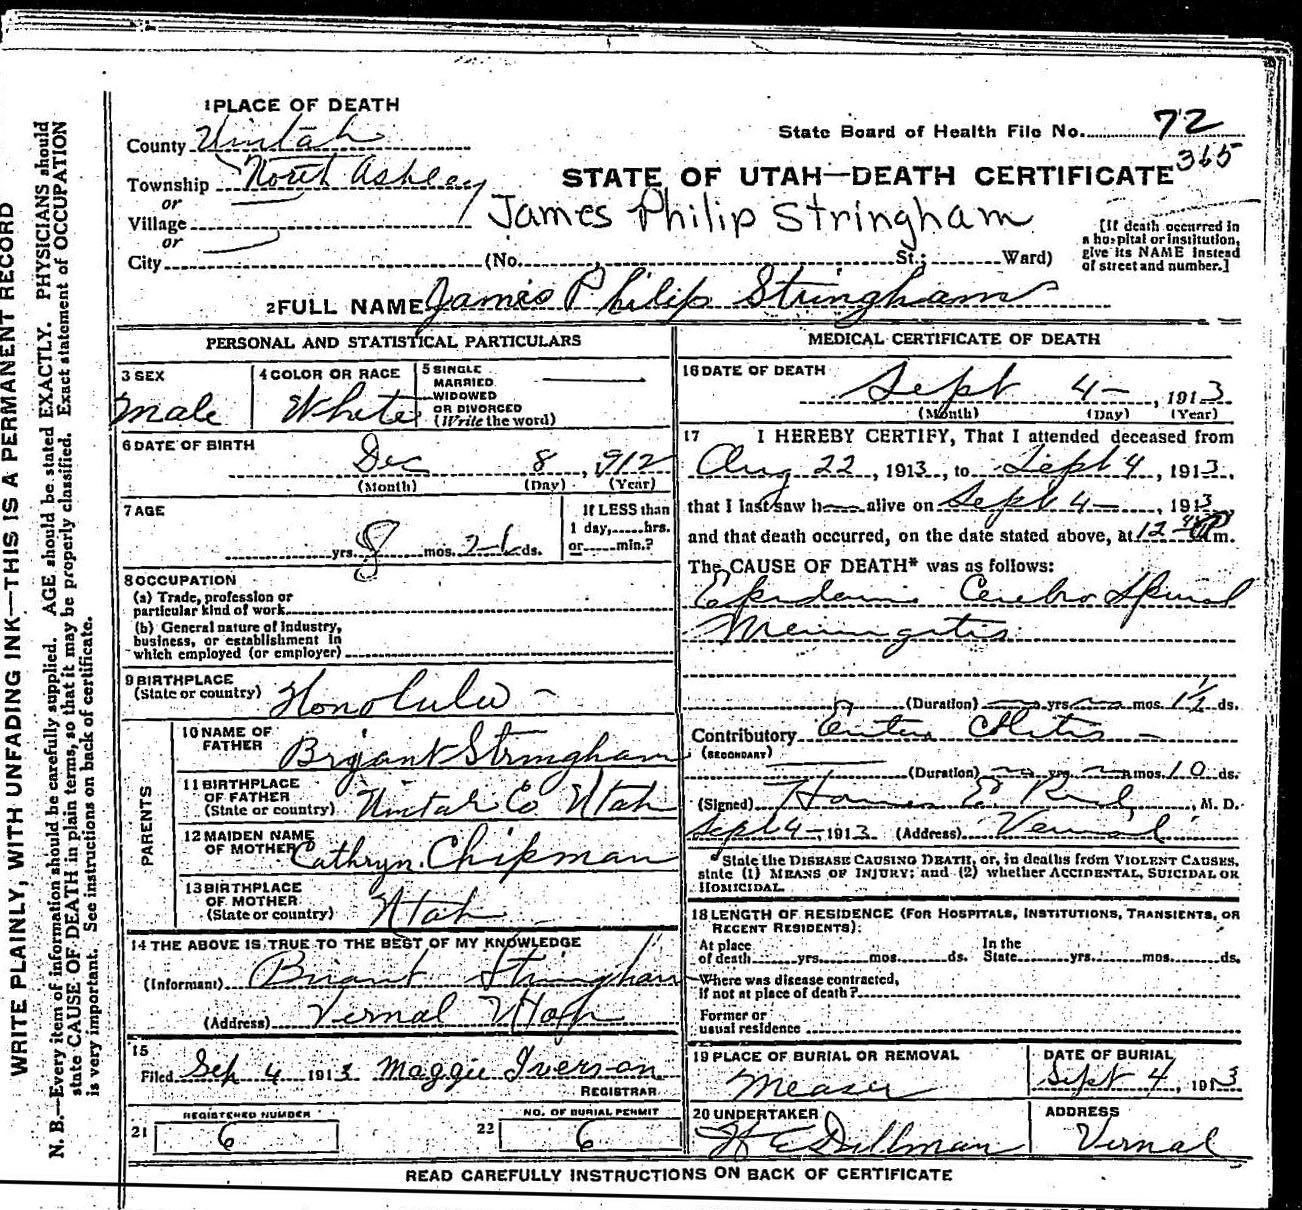 WRITE PLAINLY, WITH UNFADING INK—THIS IS A PERMANENT RECORD
N. B.—Every item of information should be carefully supplied. AGE should be stated EXACTLY. PHYSICIANS should
state CAUSE OF DEATH in plain terms, so that it may be properly classified. Exact statement of OCCUPATION
is very important. See instructions on back of certificate.
1 PLACE OF DEATH
County Uintah
State Board of Health File No. 72
365
Township North Ashley
or
STATE OF UTAH—DEATH CERTIFICATE
Village
James Philip Stringham
or
City (No. , St.; Ward)
[If death occurred in
a hospital or institution,
give its NAME instead
of street and number.]
2 FULL NAME James Philip Stringham
PERSONAL AND STATISTICAL PARTICULARS
3 SEX
Male
4 COLOR OR RACE
White
5 SINGLE
MARRIED
WIDOWED
OR DIVORCED
(Write the word)
6 DATE OF BIRTH
Dec 8, 912
(Month) (Day) (Year)
7 AGE
yrs. 8 mos. 26 ds.
If LESS than
1 day, hrs.
or min.?
8 OCCUPATION
(a) Trade, profession or
particular kind of work
(b) General nature of industry,
business, or establishment in
which employed (or employer)
9 BIRTHPLACE
(State or country) Honolulu
PARENTS
10 NAME OF
FATHER Bryant Stringham
11 BIRTHPLACE
OF FATHER
(State or country) Uintah Co Utah
12 MAIDEN NAME
OF MOTHER Cathryn Chipman
13 BIRTHPLACE
OF MOTHER
(State or country) Utah
14 THE ABOVE IS TRUE TO THE BEST OF MY KNOWLEDGE
(Informant) Briant Stringham
(Address) Vernal Utah
15
Filed Sep 4 1913 Maggie Iverson
REGISTRAR
REGISTERED NUMBER
21 6
NO. OF BURIAL PERMIT
22 6
MEDICAL CERTIFICATE OF DEATH
16 DATE OF DEATH
Sept 4—, 1913
(Month) (Day) (Year)
17 I HEREBY CERTIFY, That I attended deceased from
Aug 22, 1913, to Sept 4, 1913,
that I last saw h alive on Sept 4—, 1913
and that death occurred, on the date stated above, at 12 P m.
The CAUSE OF DEATH* was as follows:
Epidemic Cerebro Spinal
Meningitis
(Duration) yrs. mos. 1½ ds.
Contributory Entero Colitis
(SECONDARY)
(Duration) yrs. mos. 10 ds.
(Signed) , M. D.
Sept 4—1913 (Address) Vernal
*State the DISEASE CAUSING DEATH, or, in deaths from VIOLENT CAUSES,
state (1) MEANS OF INJURY; and (2) whether ACCIDENTAL, SUICIDAL OR
HOMICIDAL.
18 LENGTH OF RESIDENCE (FOR HOSPITALS, INSTITUTIONS, TRANSIENTS, OR
RECENT RESIDENTS):
At place
of death yrs. mos. ds.
In the
State yrs. mos. ds.
Where was disease contracted,
if not at place of death?
Former or
usual residence
19 PLACE OF BURIAL OR REMOVAL
Measer
DATE OF BURIAL
Sept 4, 1913
20 UNDERTAKER
W E Dillman
ADDRESS
Vernal
READ CAREFULLY INSTRUCTIONS ON BACK OF CERTIFICATE